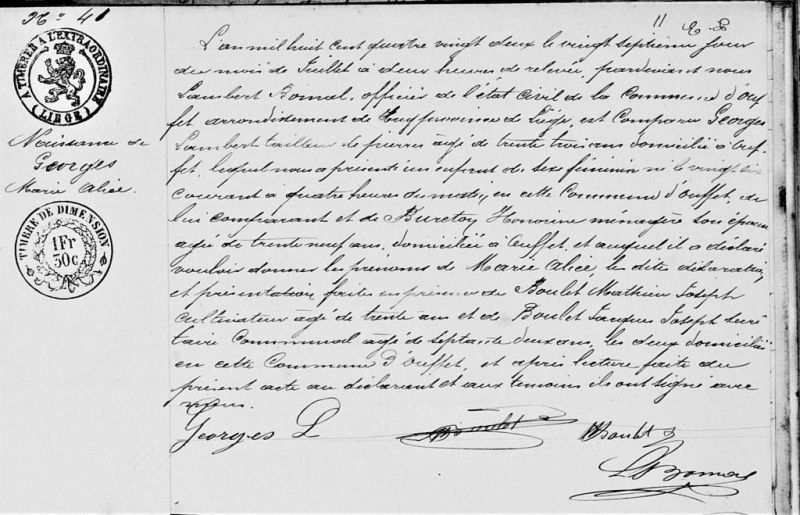 N° 41
11
A TIMBRER A L'EXTRAORDINAIRE
(LIEGE)
Naissance de
Georges
Marie Alice.
TIMBRE DE DIMENSION
1Fr
30c
L'an mil huit cent quatre vingt deux le vingt septième jour
du mois de Juillet à deux heures de relevée, pardevant nous
Lambert Bomal, officier de l'état Civil de la Commune d'Ouf
fet arrondissement de Huy province de Liège, est Comparu Georges
Lambert tailleur de pierres agé de trente trois ans domicilié à Ouf
fet, lequel nous a présenté un enfant de sexe féminin né le vingt
courant à quatre heures du matin, en cette Commune d'Ouffet, de
lui comparant et de Bureton Honorine ménagère son épouse
agée de trente neuf ans, domiciliée à Ouffet, et auquel il a déclaré
vouloir donner les prénoms de Marie Alice, les dites déclaration
et présentation faites en présence de Boulet Mathieu Joseph
cultivateur agé de trente ans et de Boulet Jacques Joseph secré
taire Communal agé de septante deux ans, les deux domiciliés
en cette Commune d'Ouffet, et après lecture faite du
présent acte au déclarant et aux témoins ils ont signé avec
nous.
Georges L
Boulet
Boulet
L Bomal